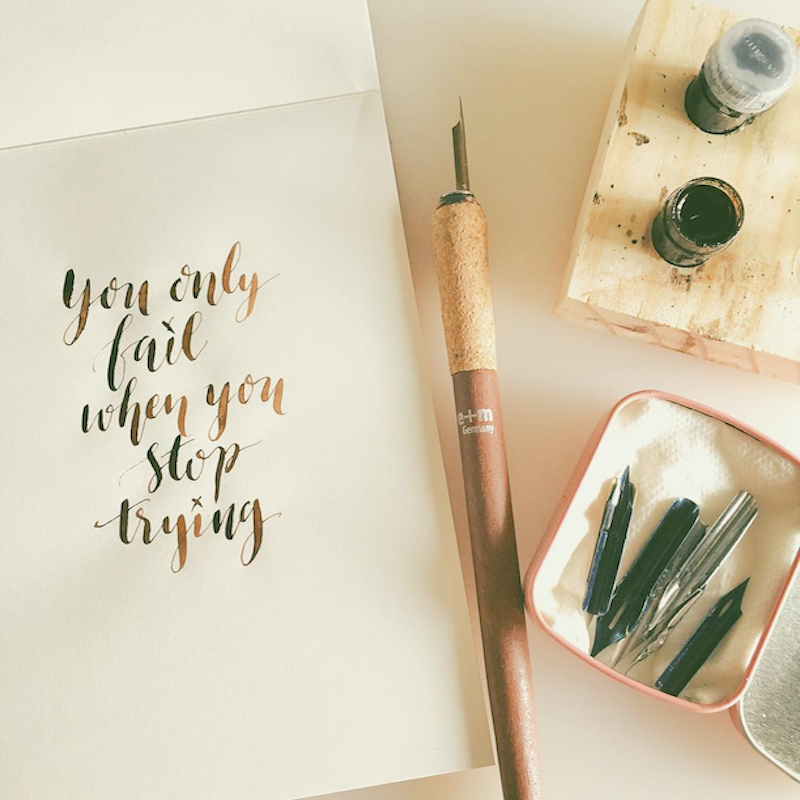 You only
fail
when you
stop
trying
e+m
Germany